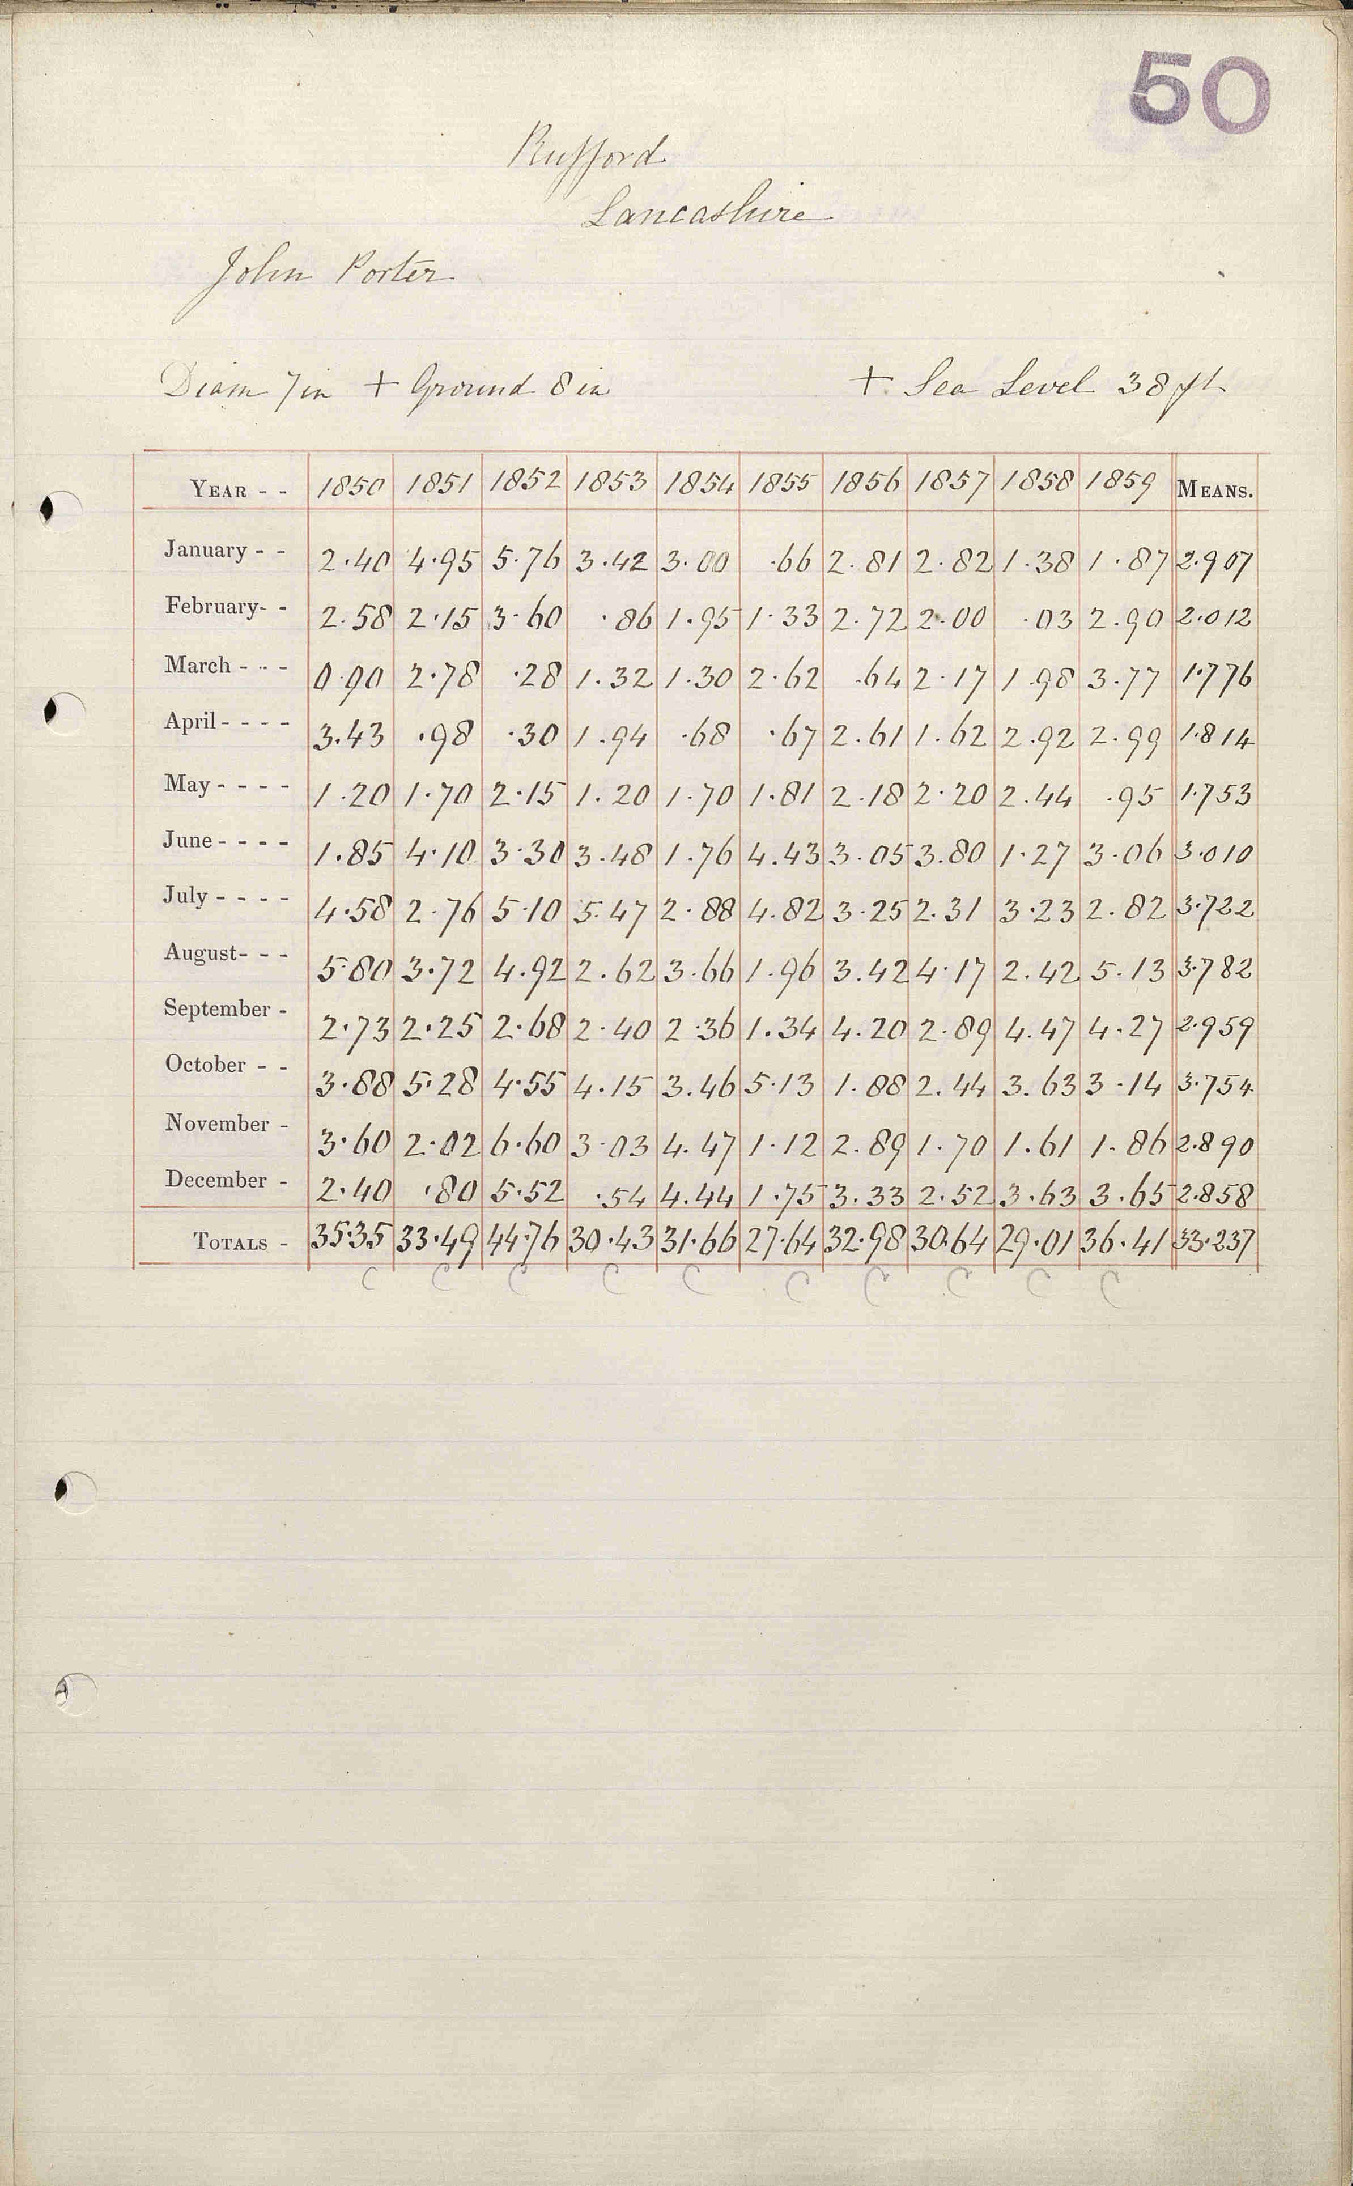 50
Rufford
Lancashire
John Porter
Diam 7 in + Ground 8 in + Sea Level 38 ft
YEAR - - 1850 1851 1852 1853 1854 1855 1856 1857 1858 1859 MEANS.
January - - 2.40 4.95 5.76 3.42 3.00 .66 2.81 2.82 1.38 1.87 2.907
February- - 2.58 2.15 3.60 .86 1.95 1.33 2.72 2.00 .03 2.90 2.012
March - - - 0.90 2.78 .28 1.32 1.30 2.62 .64 2.17 1.98 3.77 1.776
April - - - - 3.43 .98 .30 1.94 .68 .67 2.61 1.62 2.92 2.99 1.814
May - - - - 1.20 1.70 2.15 1.20 1.70 1.81 2.18 2.20 2.44 .95 1.753
June - - - - 1.85 4.10 3.30 3.48 1.76 4.43 3.05 3.80 1.27 3.06 3.010
July - - - - 4.58 2.76 5.10 5.47 2.88 4.82 3.25 2.31 3.23 2.82 3.722
August- - - 5.80 3.72 4.92 2.62 3.66 1.96 3.42 4.17 2.42 5.13 3.782
September - 2.73 2.25 2.68 2.40 2.36 1.34 4.20 2.89 4.47 4.27 2.959
October - - 3.88 5.28 4.55 4.15 3.46 5.13 1.88 2.44 3.63 3.14 3.754
November - 3.60 2.02 6.60 3.03 4.47 1.12 2.89 1.70 1.61 1.86 2.890
December - 2.40 .80 5.52 .54 4.44 1.75 3.33 2.52 3.63 3.65 2.858
TOTALS - 35.35 33.49 44.76 30.43 31.66 27.64 32.98 30.64 29.01 36.41 33.237
C C C C C C C C C C